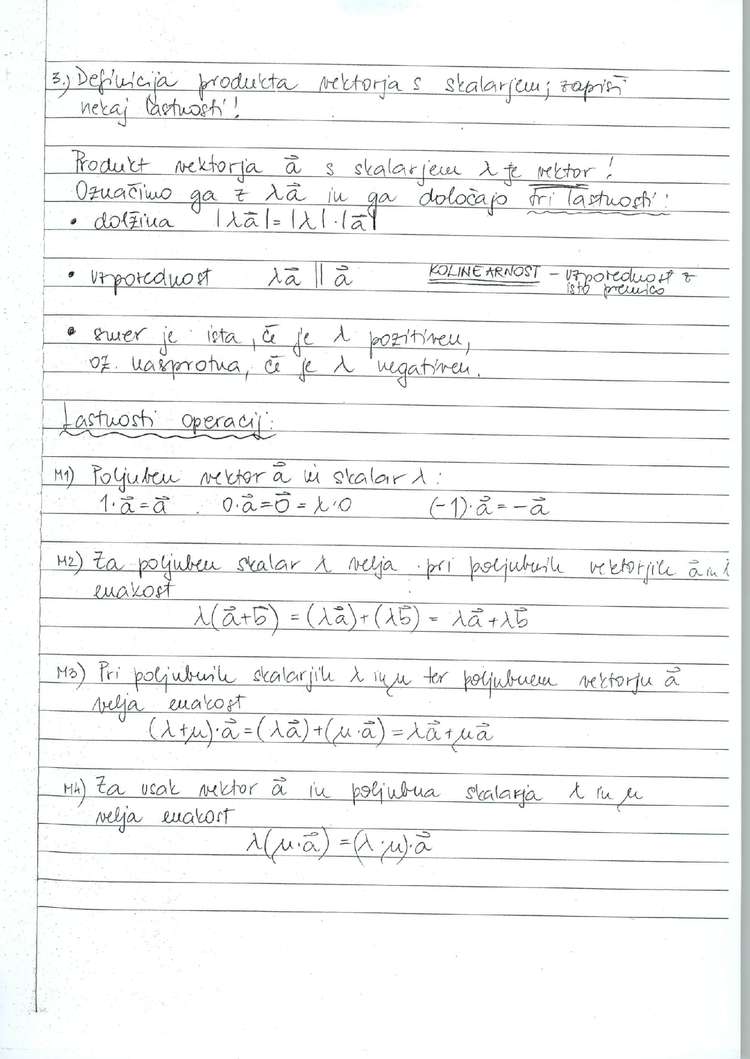 3.) Definicija produkta vektorja s skalarjem; zapiši
nekaj lastnosti!
Produkt vektorja a⃗ s skalarjem λ je vektor!
Označimo ga z λa⃗ in ga določajo tri lastnosti:
• dolžina |λa⃗| = |λ|·|a⃗|
• vzporednost λa⃗ || a⃗ KOLINEARNOST – vzporednost z
isto premico
• smer je ista, če je λ pozitiven,
oz. nasprotna, če je λ negativen.
Lastnosti operacij:
M1) Poljuben vektor a⃗ in skalar λ:
1·a⃗ = a⃗ . 0·a⃗ = 0⃗ = λ·0 (-1)·a⃗ = -a⃗
M2) Za poljuben skalar λ velja pri poljubnih vektorjih a⃗ in
enakost
λ(a⃗+b⃗) = (λa⃗)+(λb⃗) = λa⃗+λb⃗
M3) Pri poljubnih skalarjih λ in μ ter poljubnem vektorju a⃗
velja enakost
(λ+μ)·a⃗ = (λa⃗)+(μ·a⃗) = λa⃗+μa⃗
M4) Za vsak vektor a⃗ in poljubna skalarja λ in μ
velja enakost
λ(μ·a⃗) = (λ·μ)·a⃗